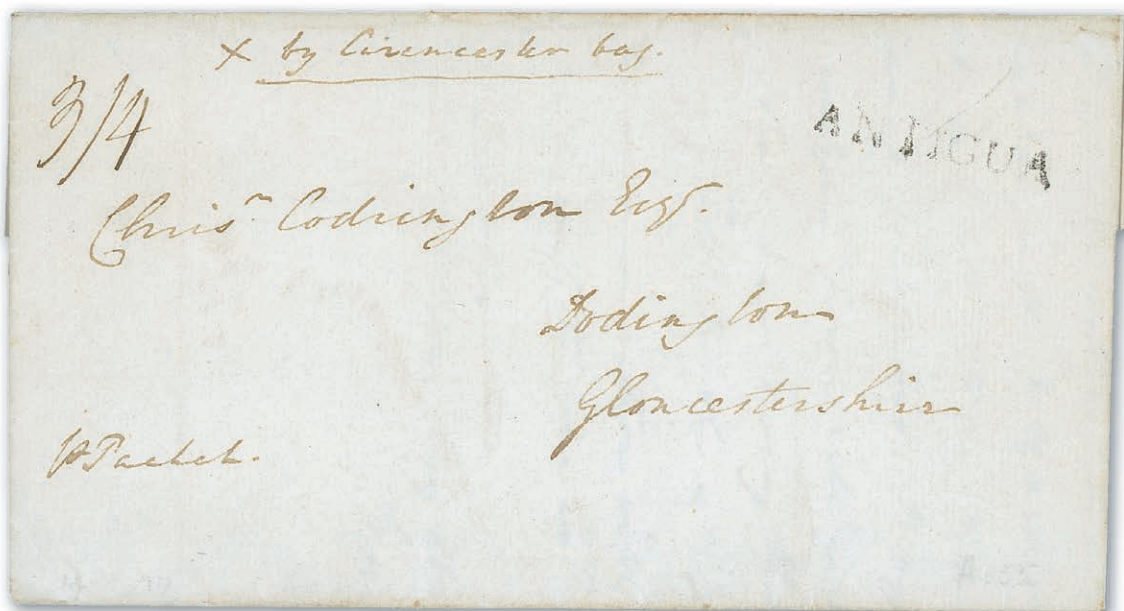 x by Cirencester bag.
3/4
ANTIGUA
Chris^n Codrington Esq^r.
Dodington
Gloucestershire
p Packet.